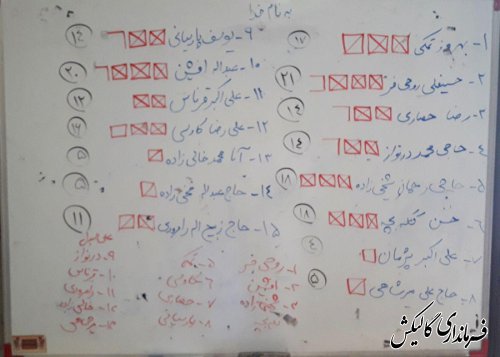 به نام خدا
۱- بهروز نمکی ۱۷
۲- حسینعلی روحی فر ۲۱
۳- رضا حصاری ۱۴
۴- حاجی محمد درنواز ۱۴
۵- حاجی رحمان شیخی زاده ۱۸
۶- حسن گلله بچه ۱۸
۷- علی اکبر پژمان ۴
۸- حاج علی میرشاهی ۵
۹- یوسف پارسیانی ۱۴
۱۰- عبداله افشین ۲۰
۱۱- علی اکبر قرناس ۱۲
۱۲- علی رضا کاوسی ۱۶
۱۳- آنا محمد خانی زاده ۵
۱۴- حاج عبداله فخی زاده ۵
۱۵- حاج ذبیح اله رامودی ۱۱
۱- روحی فر
۲- افشین
۳- شیخی زاده
۵- نمکی
۶- کاوسی
۷- حصاری
۸- پارسیانی
علی البدل
۹- درنواز
۱۰- قرناس
۱۱- رامودی
۱۲- خانی زاده
فرمانداری گالیکش